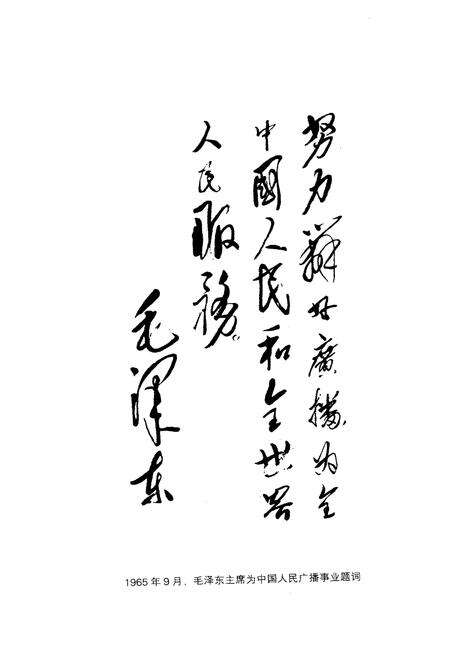 努力辦好廣播为全
中國人民和全世界
人民服務。
毛泽东
1965年9月，毛泽东主席为中国人民广播事业题词